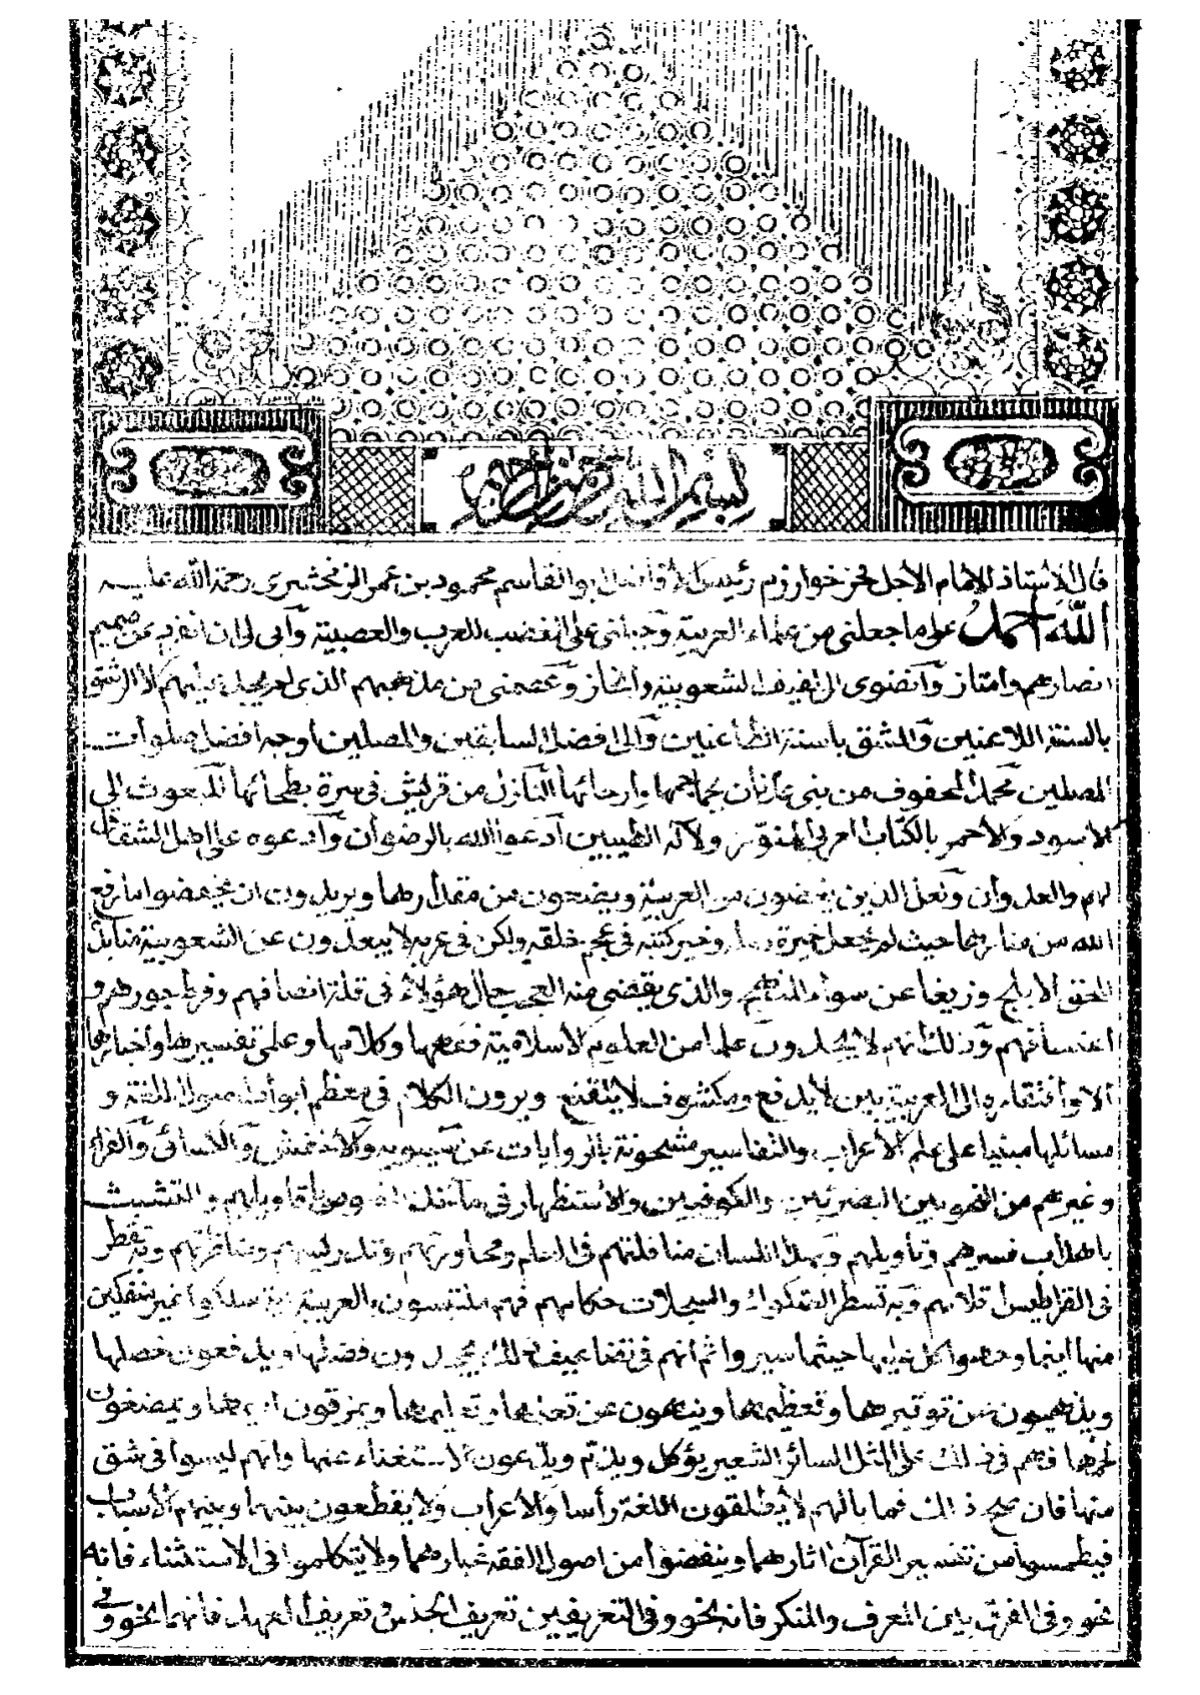 بسم الله الرحمن الرحيم
قال الأستاذ الامام الاجل فخر خوارزم رئيس الأفاضل ابو القاسم محمود بن عمر الزمخشري رحمة الله عليه
الله احمد على ما جعلني من علماء العربية وجبلني على الغضب للعرب والعصبية وأبى لي ان انفرد عن صميم
انصارهم وامتاز وأنضوى الى لفيف الشعوبية وانحاز وعصمني من مذهبهم الذى لم يجد عليهم الا الرشق
بالسنة اللاعنين والمشق باسنة الطاعنين والى افضل السابقين والمصلين اوجه افضل صلوات
المصلين محمد المحفوف من بني عدنان بجماجمها وارحائها النازل من قريش في سرة بطحائها المبعوث الى
الاسود والأحمر بالكتاب العربي المنور ولآله الطيبين ادعو الله بالرضوان وادعوه على اهل الشقاق
لهم والعدوان ولعل الذين يغضون من العربية ويضعون من مقدارها ويريدون ان يخفضوا ما رفع
الله من منارها حيث لم يجعل خيرة رسله وخير كتبه في عجم خلقه ولكن في عربه لا يبعدون عن الشعوبية منابذة
للحق الابلج وزيغا عن سواء المنهج والذى يقضى منه العجب حال هؤلاء في قلة انصافهم وفرط جورهم و
اعتسافهم وذلك انهم لا يجدون علما من العلوم الأسلامية فقهها وكلامها وعلمي تفسيرها واخبارها
الا وافتقاره الى العربية بين لا يدفع ومكشوف لا يتقنع ويرون الكلام في معظم ابواب اصول الفقه و
مسائلها مبنيا على علم الأعراب والتفاسير مشحونة بالروايات عن سيبويه والأخفش والكسائي والفراء
وغيرهم من النحويين البصريين والكوفيين والأستظهار في مآخذ النصوص باقاويلهم والتشبث
باهداب فسرهم وتأويلهم وبهذا اللسان مناقلتهم في العلم ومحاورتهم وتدريسهم ومناظرتهم وبه تقطر
في القراطيس اقلامهم وبه تسطر الصكوك والسجلات حكامهم فهم ملتبسون بالعربية اية سلكوا غير منفكين
منها اينما وجهوا كل عليها حيثما سيروا ثم انهم في تضاعيف ذلك يجحدون فضلها ويدفعون خصلها
ويذهبون عن توقيرها وتعظيمها وينهون عن تعلمها وتعليمها ويمزقون اديمها ويمضغون
لحمها فهم في ذلك على المثل السائر الشعير يؤكل ويذم ويدعون الاستغناء عنها وانهم ليسوا في شق
منها فان صح ذلك فما بالهم لا يطلقون اللغة رأسا والأعراب ولا يقطعون بينها وبينهم الأسباب
فيطمسوا من تفسير القرآن اثارهما وينفضوا من اصول الفقه غبارهما ولا يتكلموا في الاستثناء فانه
نحو وفي الفرق بين المعرف والمنكر فانه نحو وفي التعريفين تعريف الجنس وتعريف العهد فانهما نحو وفي